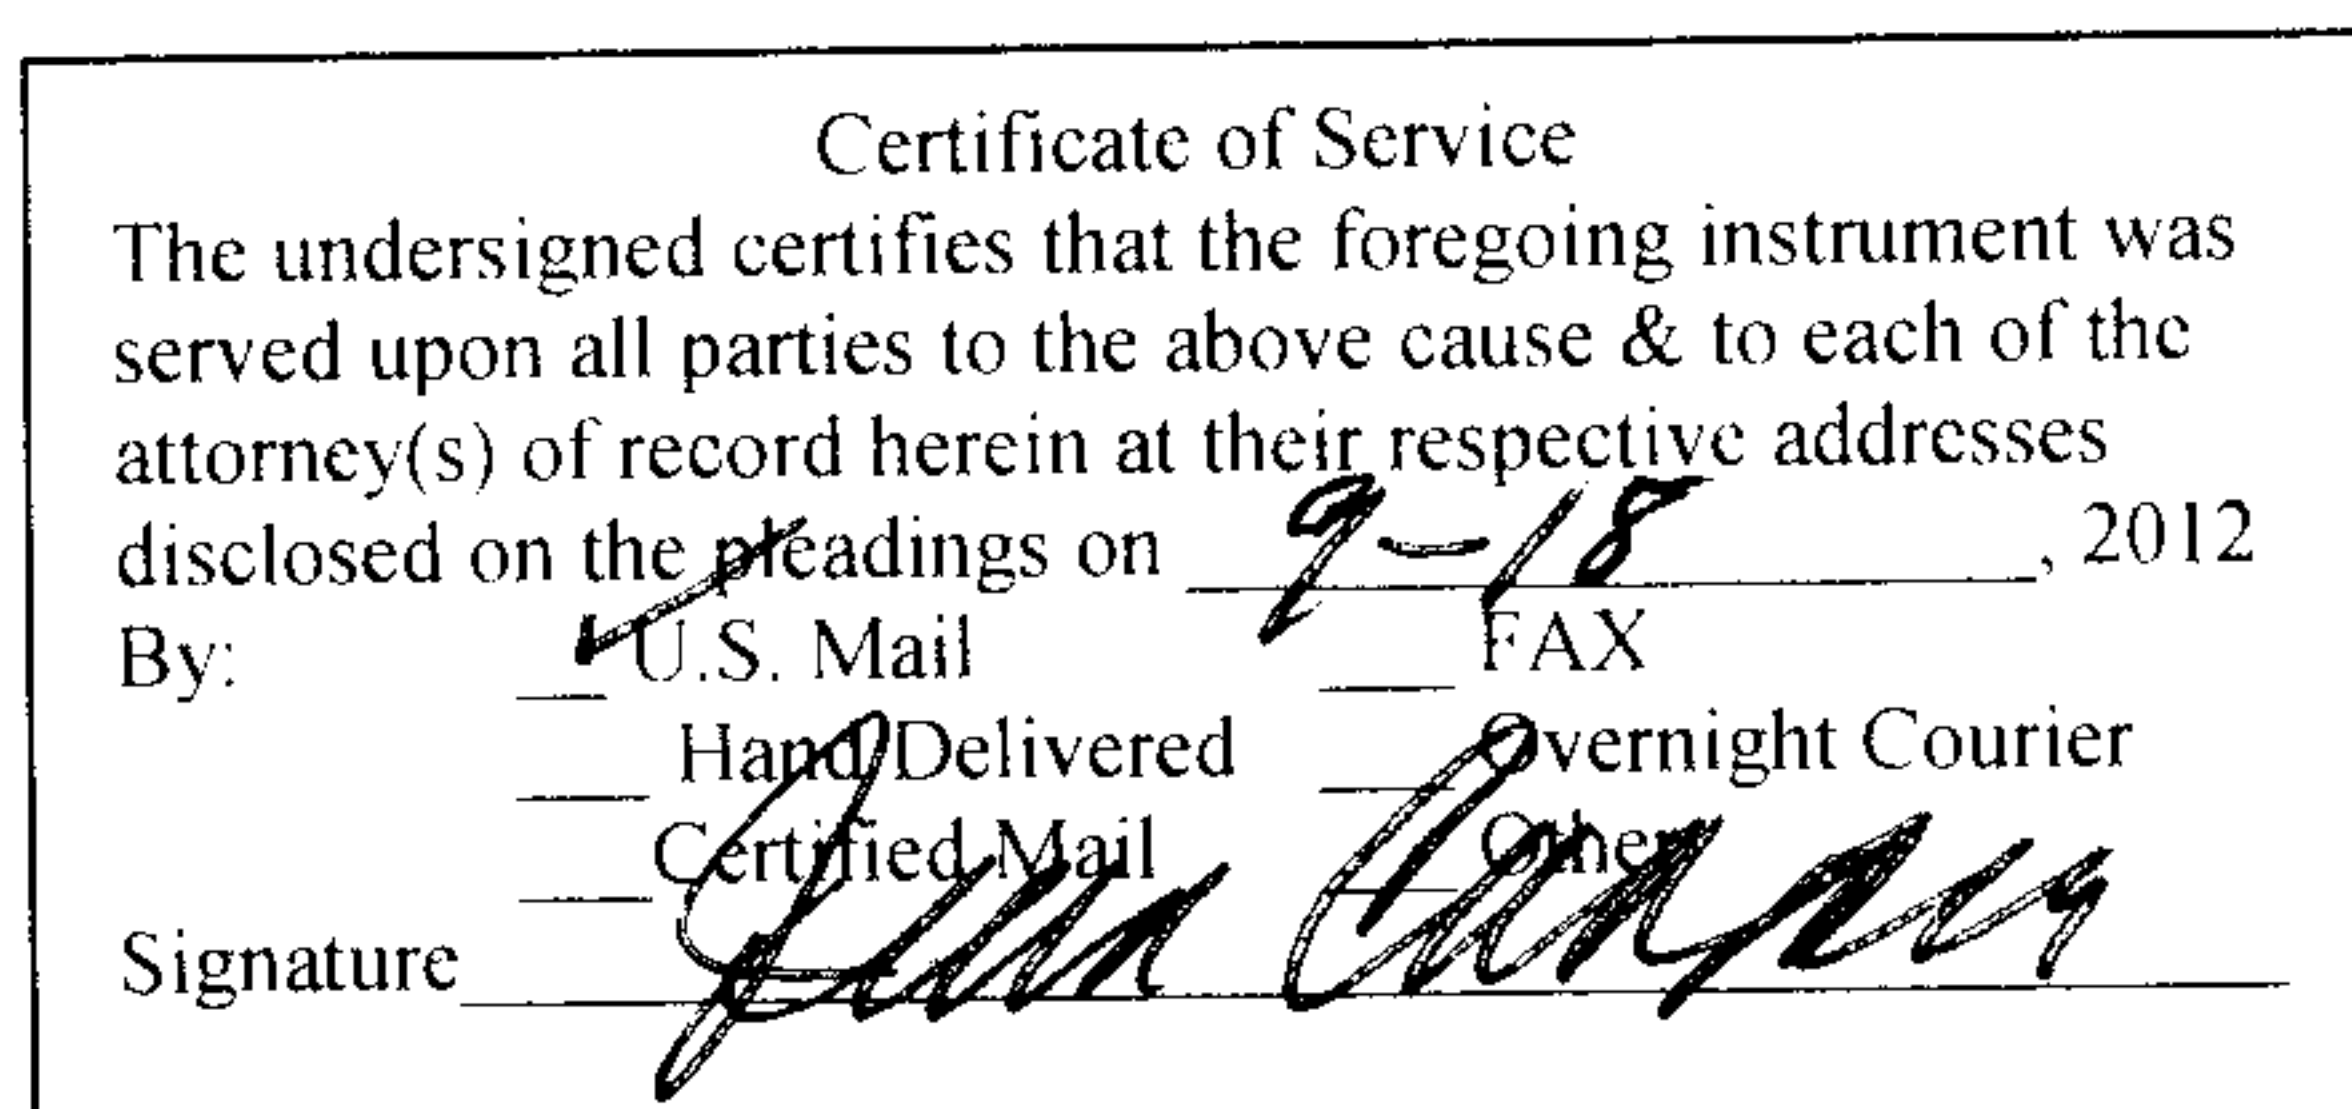 Certificate of Service
The undersigned certifies that the foregoing instrument was
served upon all parties to the above cause & to each of the
attorney(s) of record herein at their respective addresses
disclosed on the pleadings on 9-18, 2012
By: ✓ U.S. Mail ___ FAX
___ Hand Delivered ___ Overnight Courier
___ Certified Mail ___ Other
Signature